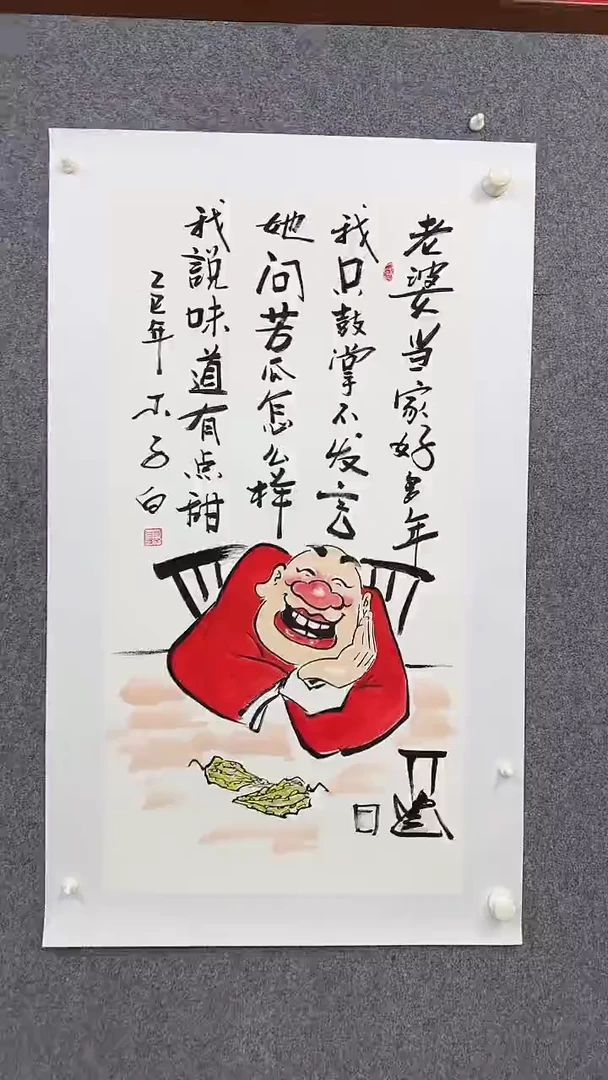 老婆当家好多年
我只鼓掌不发言
她问苦瓜怎么样
我說味道有点甜
乙巳年 木子白